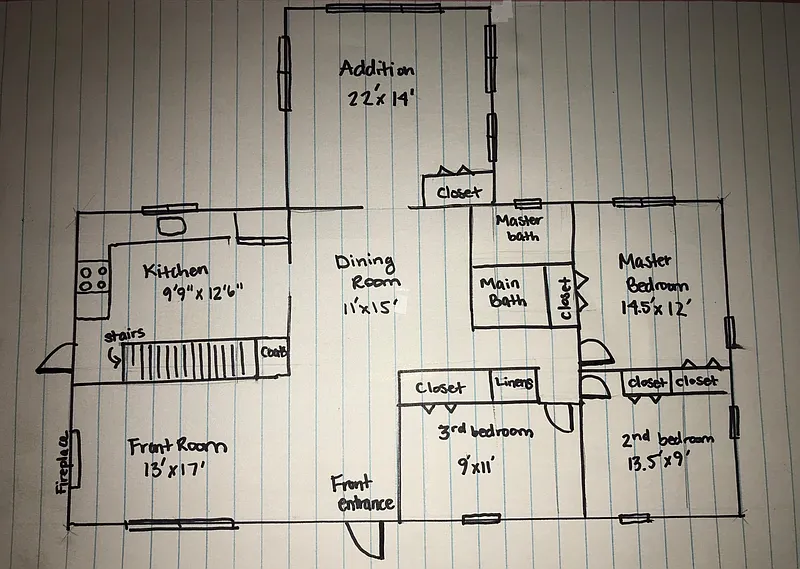 Addition
22'x 14'
Closet
Master
bath
Kitchen
9'9" x 12'6"
Dining
Room
11'x15'
Main
Bath
closet
Master
Bedroom
14.5'x 12'
stairs
Coats
Closet
Linens
closet
closet
Front Room
13'x17'
Fireplace
3rd bedroom
9'x11'
2nd bedroom
13.5'x9'
Front
entrance